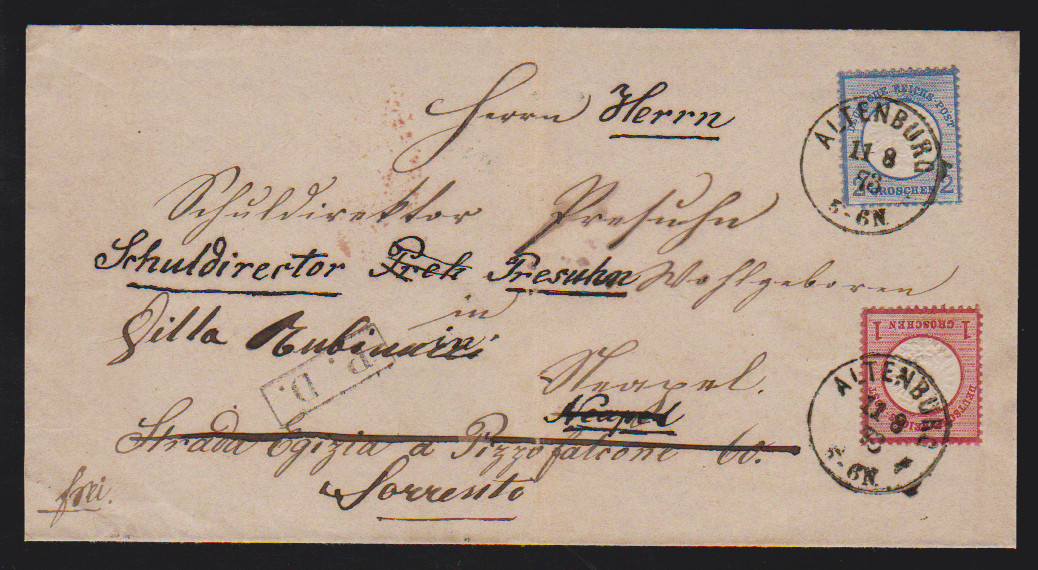 Herrn Herrn
Schuldirektor Presuhn
Schuldirector Presuhn Wohlgeboren
in
Villa
Neapel.
Neapel
Strada Egizia a Pizzofalcone 60.
Sorrento
frei.
P. D.
REICHS-POST
2 GROSCHEN 2
ALTENBURG
11 8
73
5-6N.
1 GROSCHEN 1
ALTENBURG
11 8
73
5-6N.